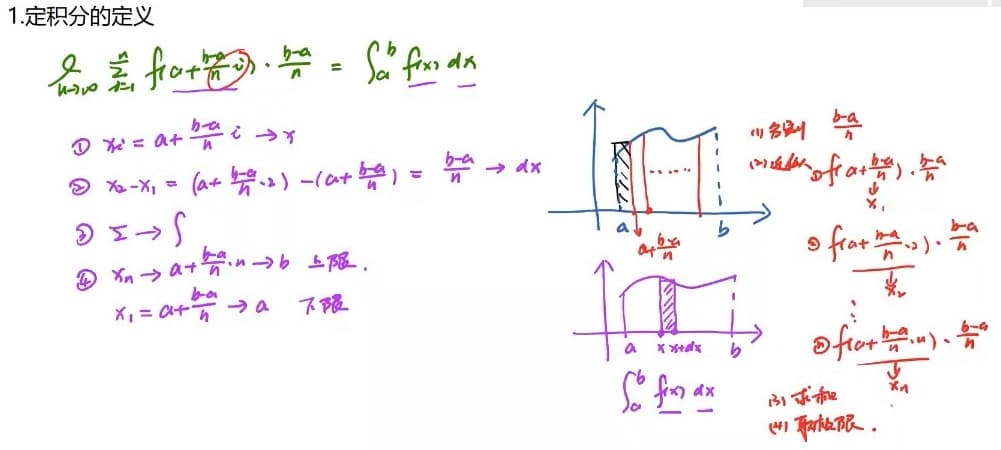 1.定积分的定义
lim n→∞ n Σ i=1 f(a+(b-a)/n i)·(b-a)/n = ∫_a^b f(x) dx
① xi = a+(b-a)/n i → x
② x₂-x₁ = (a+(b-a)/n·2)-(a+(b-a)/n) = (b-a)/n → dx
③ Σ → ∫
④ xn → a+(b-a)/n·n → b 上限.
x₁ = a+(b-a)/n → a 下限
a
a+(b-a)/n
b
a x x+dx b
∫_a^b f(x) dx
(1) 分割 (b-a)/n
(2) 近似 ① f(a+(b-a)/n)·(b-a)/n
x₁
② f(a+(b-a)/n·2)·(b-a)/n
x₂
⋮
ⓝ f(a+(b-a)/n·n)·(b-a)/n
xn
(3) 求和
(4) 取极限.